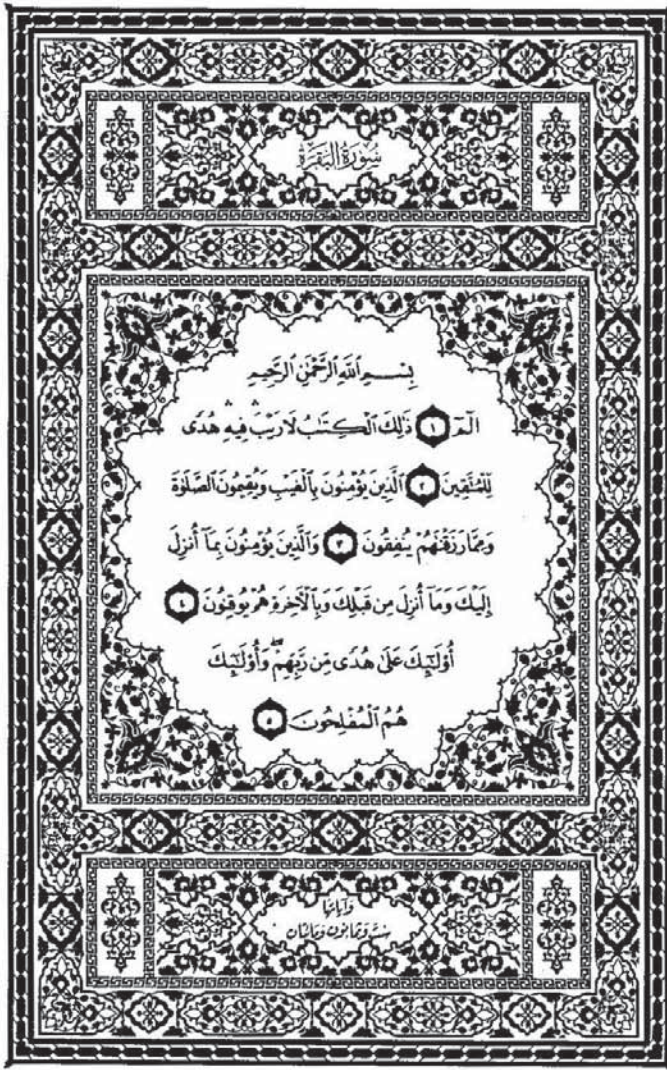 سُورَةُ البَقَرَة
بِسْمِ ٱللَّهِ ٱلرَّحْمَٰنِ ٱلرَّحِيمِ
الٓمٓ ١ ذَٰلِكَ ٱلْكِتَٰبُ لَا رَيْبَ ۛ فِيهِ ۛ هُدًى
لِّلْمُتَّقِينَ ٢ ٱلَّذِينَ يُؤْمِنُونَ بِٱلْغَيْبِ وَيُقِيمُونَ ٱلصَّلَوٰةَ
وَمِمَّا رَزَقْنَٰهُمْ يُنفِقُونَ ٣ وَٱلَّذِينَ يُؤْمِنُونَ بِمَآ أُنزِلَ
إِلَيْكَ وَمَآ أُنزِلَ مِن قَبْلِكَ وَبِٱلْءَاخِرَةِ هُمْ يُوقِنُونَ ٤
أُو۟لَٰٓئِكَ عَلَىٰ هُدًى مِّن رَّبِّهِمْ ۖ وَأُو۟لَٰٓئِكَ
هُمُ ٱلْمُفْلِحُونَ ٥
وَآيَاتُهَا
سِتٌّ وَثَمَانُونَ وَمِائَتَانِ